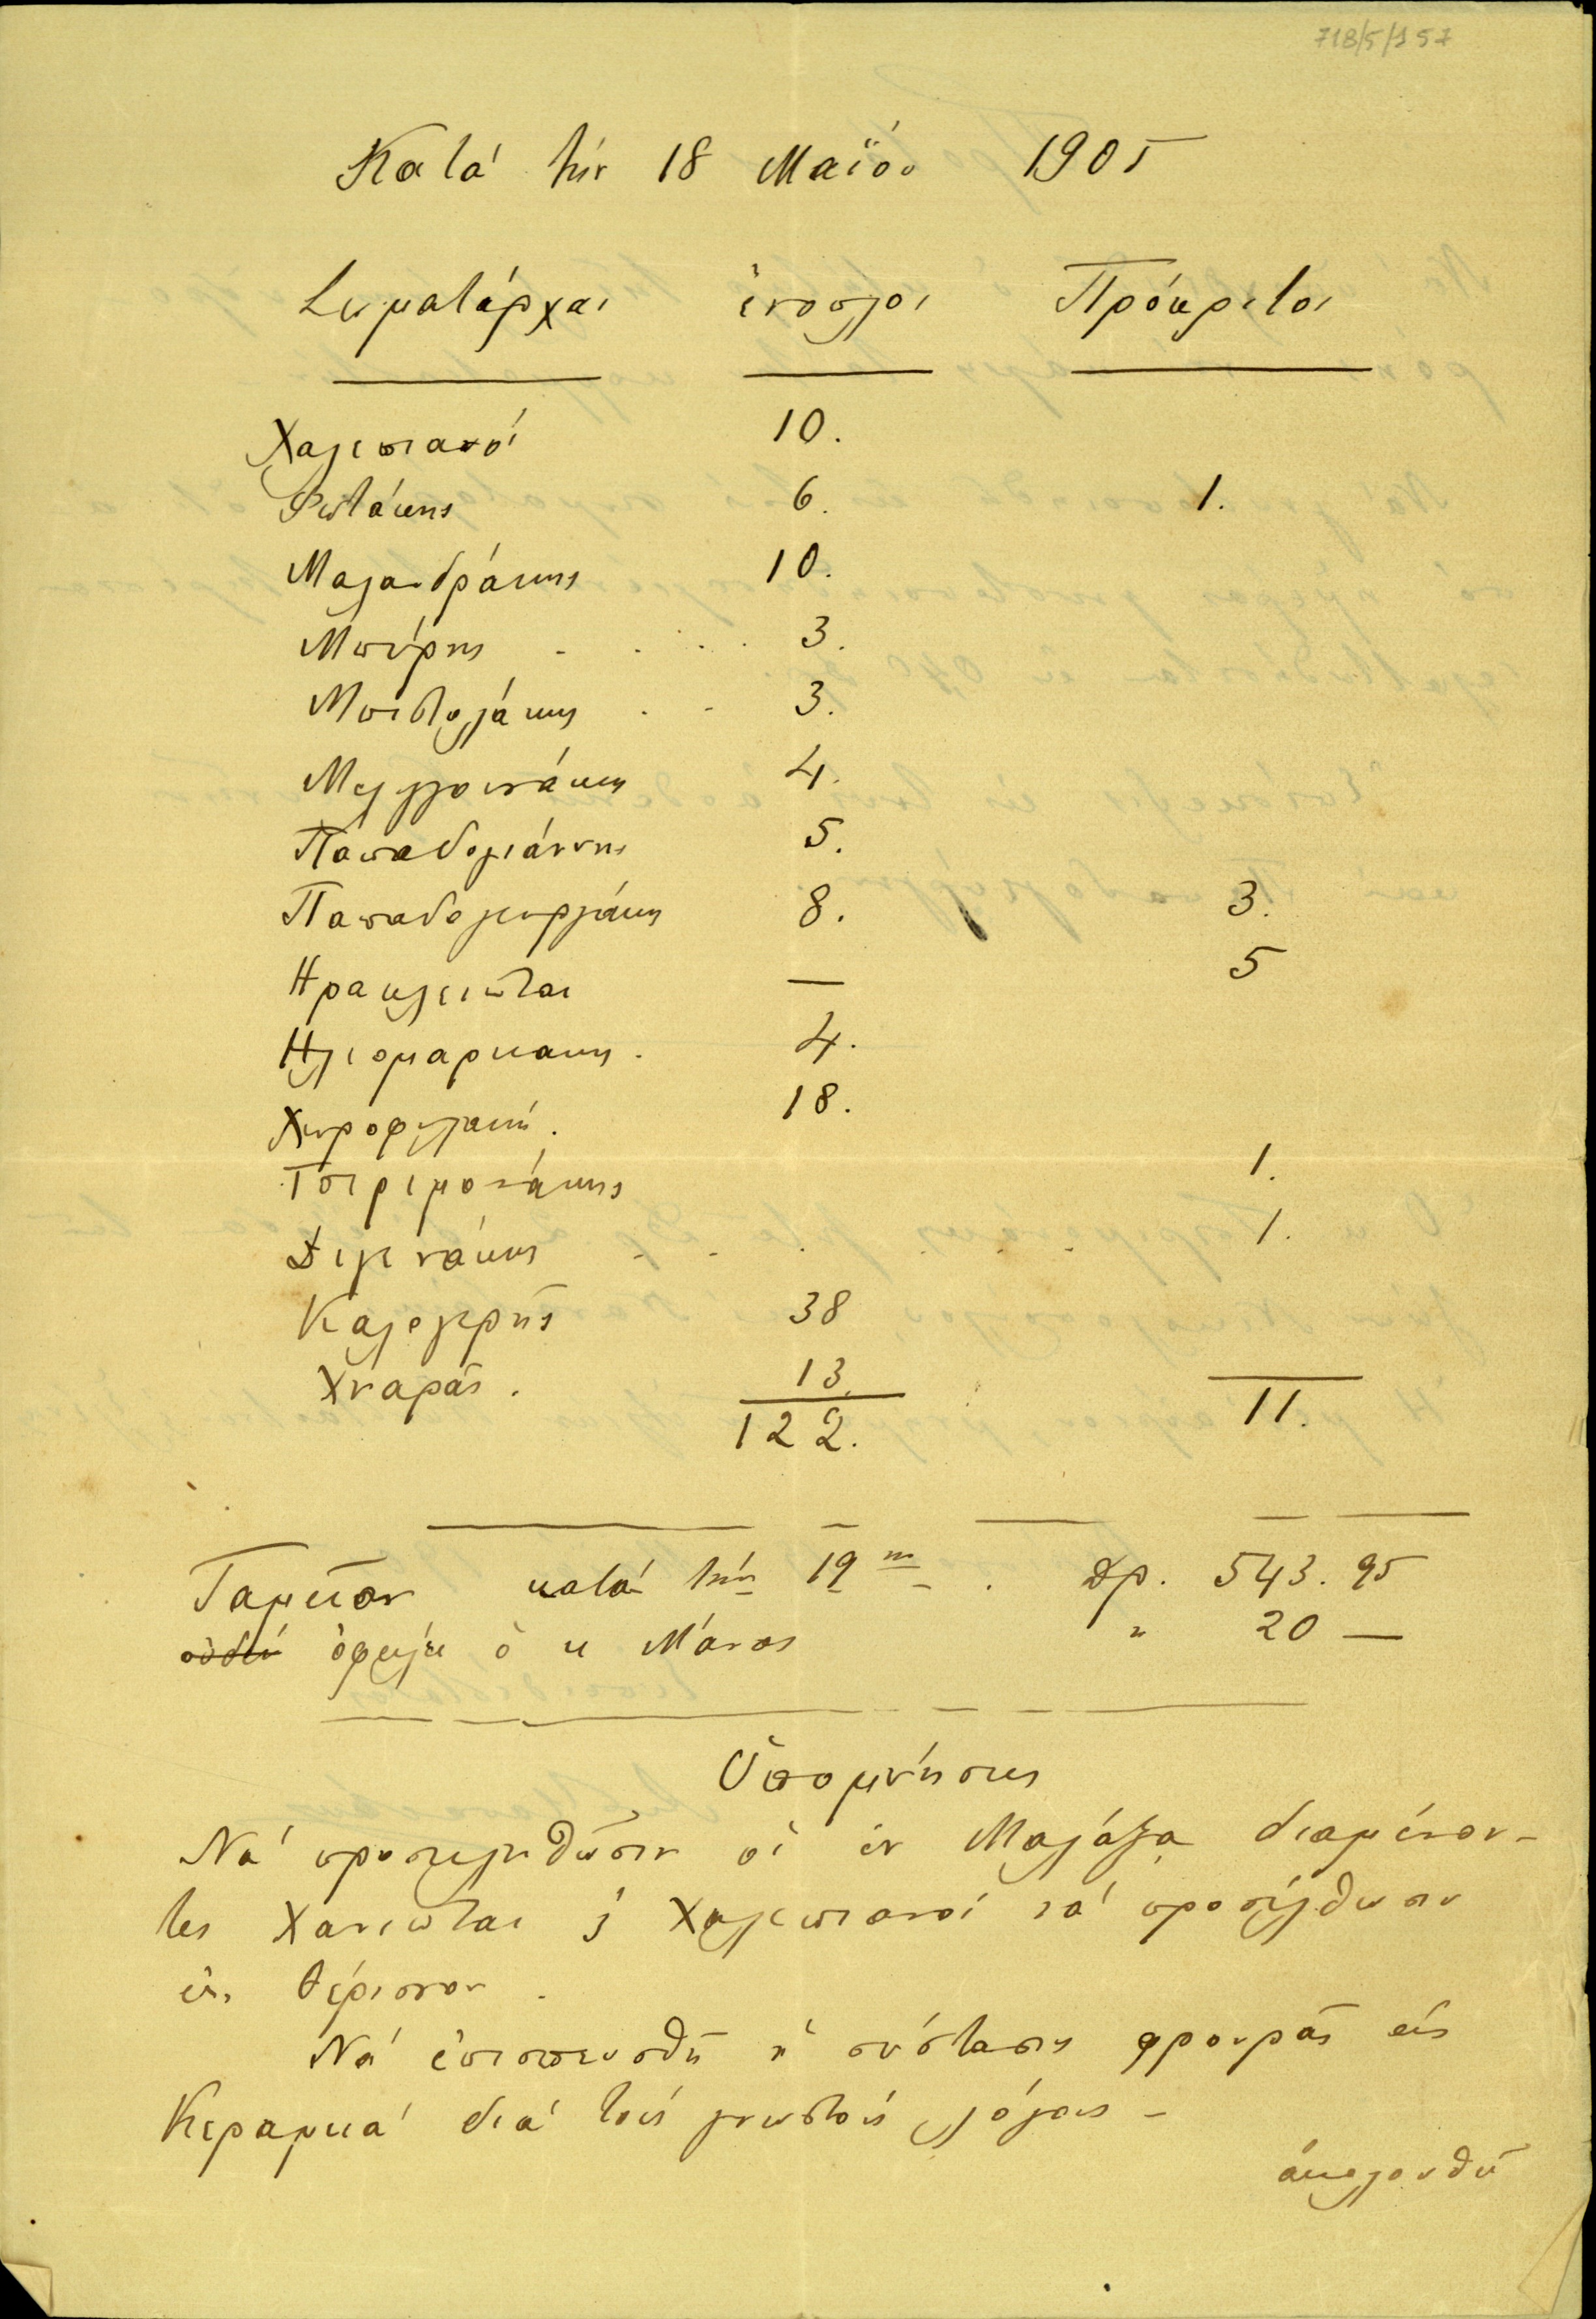 718/5/157
Κατά τήν 18 Μαΐου 1905
Σωματάρχαι ἔνοπλοι Πρόκριτοι
Χαλεπιανοί 10.
Φωτάκης 6. 1.
Μαλανδράκης 10.
Μπύρης - . . . 3.
Μπιστολάκης . - 3.
Μυλλονάκης 4.
Παπαδογιάννης 5.
Παπαδογεωργάκης 8. 3.
Ηρακλειῶται — 5
Ηλιομαρκακης . 4.
Χωροφυλακή . 18.
Τσιριμονάκης 1.
Διγενάκης - - . . . - 1.
Καλογερῆς 38
Χναρᾶς . 13.
122. 11.
Ταμεῖον κατά τήν 19ην . Δρ. 543.95
οὐδέν ὀφείλει ὁ κ Μάνος " 20 —
Ὑπομνήσεις
Νά προσκληθῶσιν οἱ ἐν Μαλάξα διαμένον-
τες Χανιῶται ἤ Χαλεπιανοί νά προσέλθωσιν
εἰς Θέρισσον .
Νά ἐπισπευσθῆ ἡ σύστασις φρουρᾶς εἰς
Κεραμειά διά τούς γνωστούς λόγους -
ἀκολουθεῖ